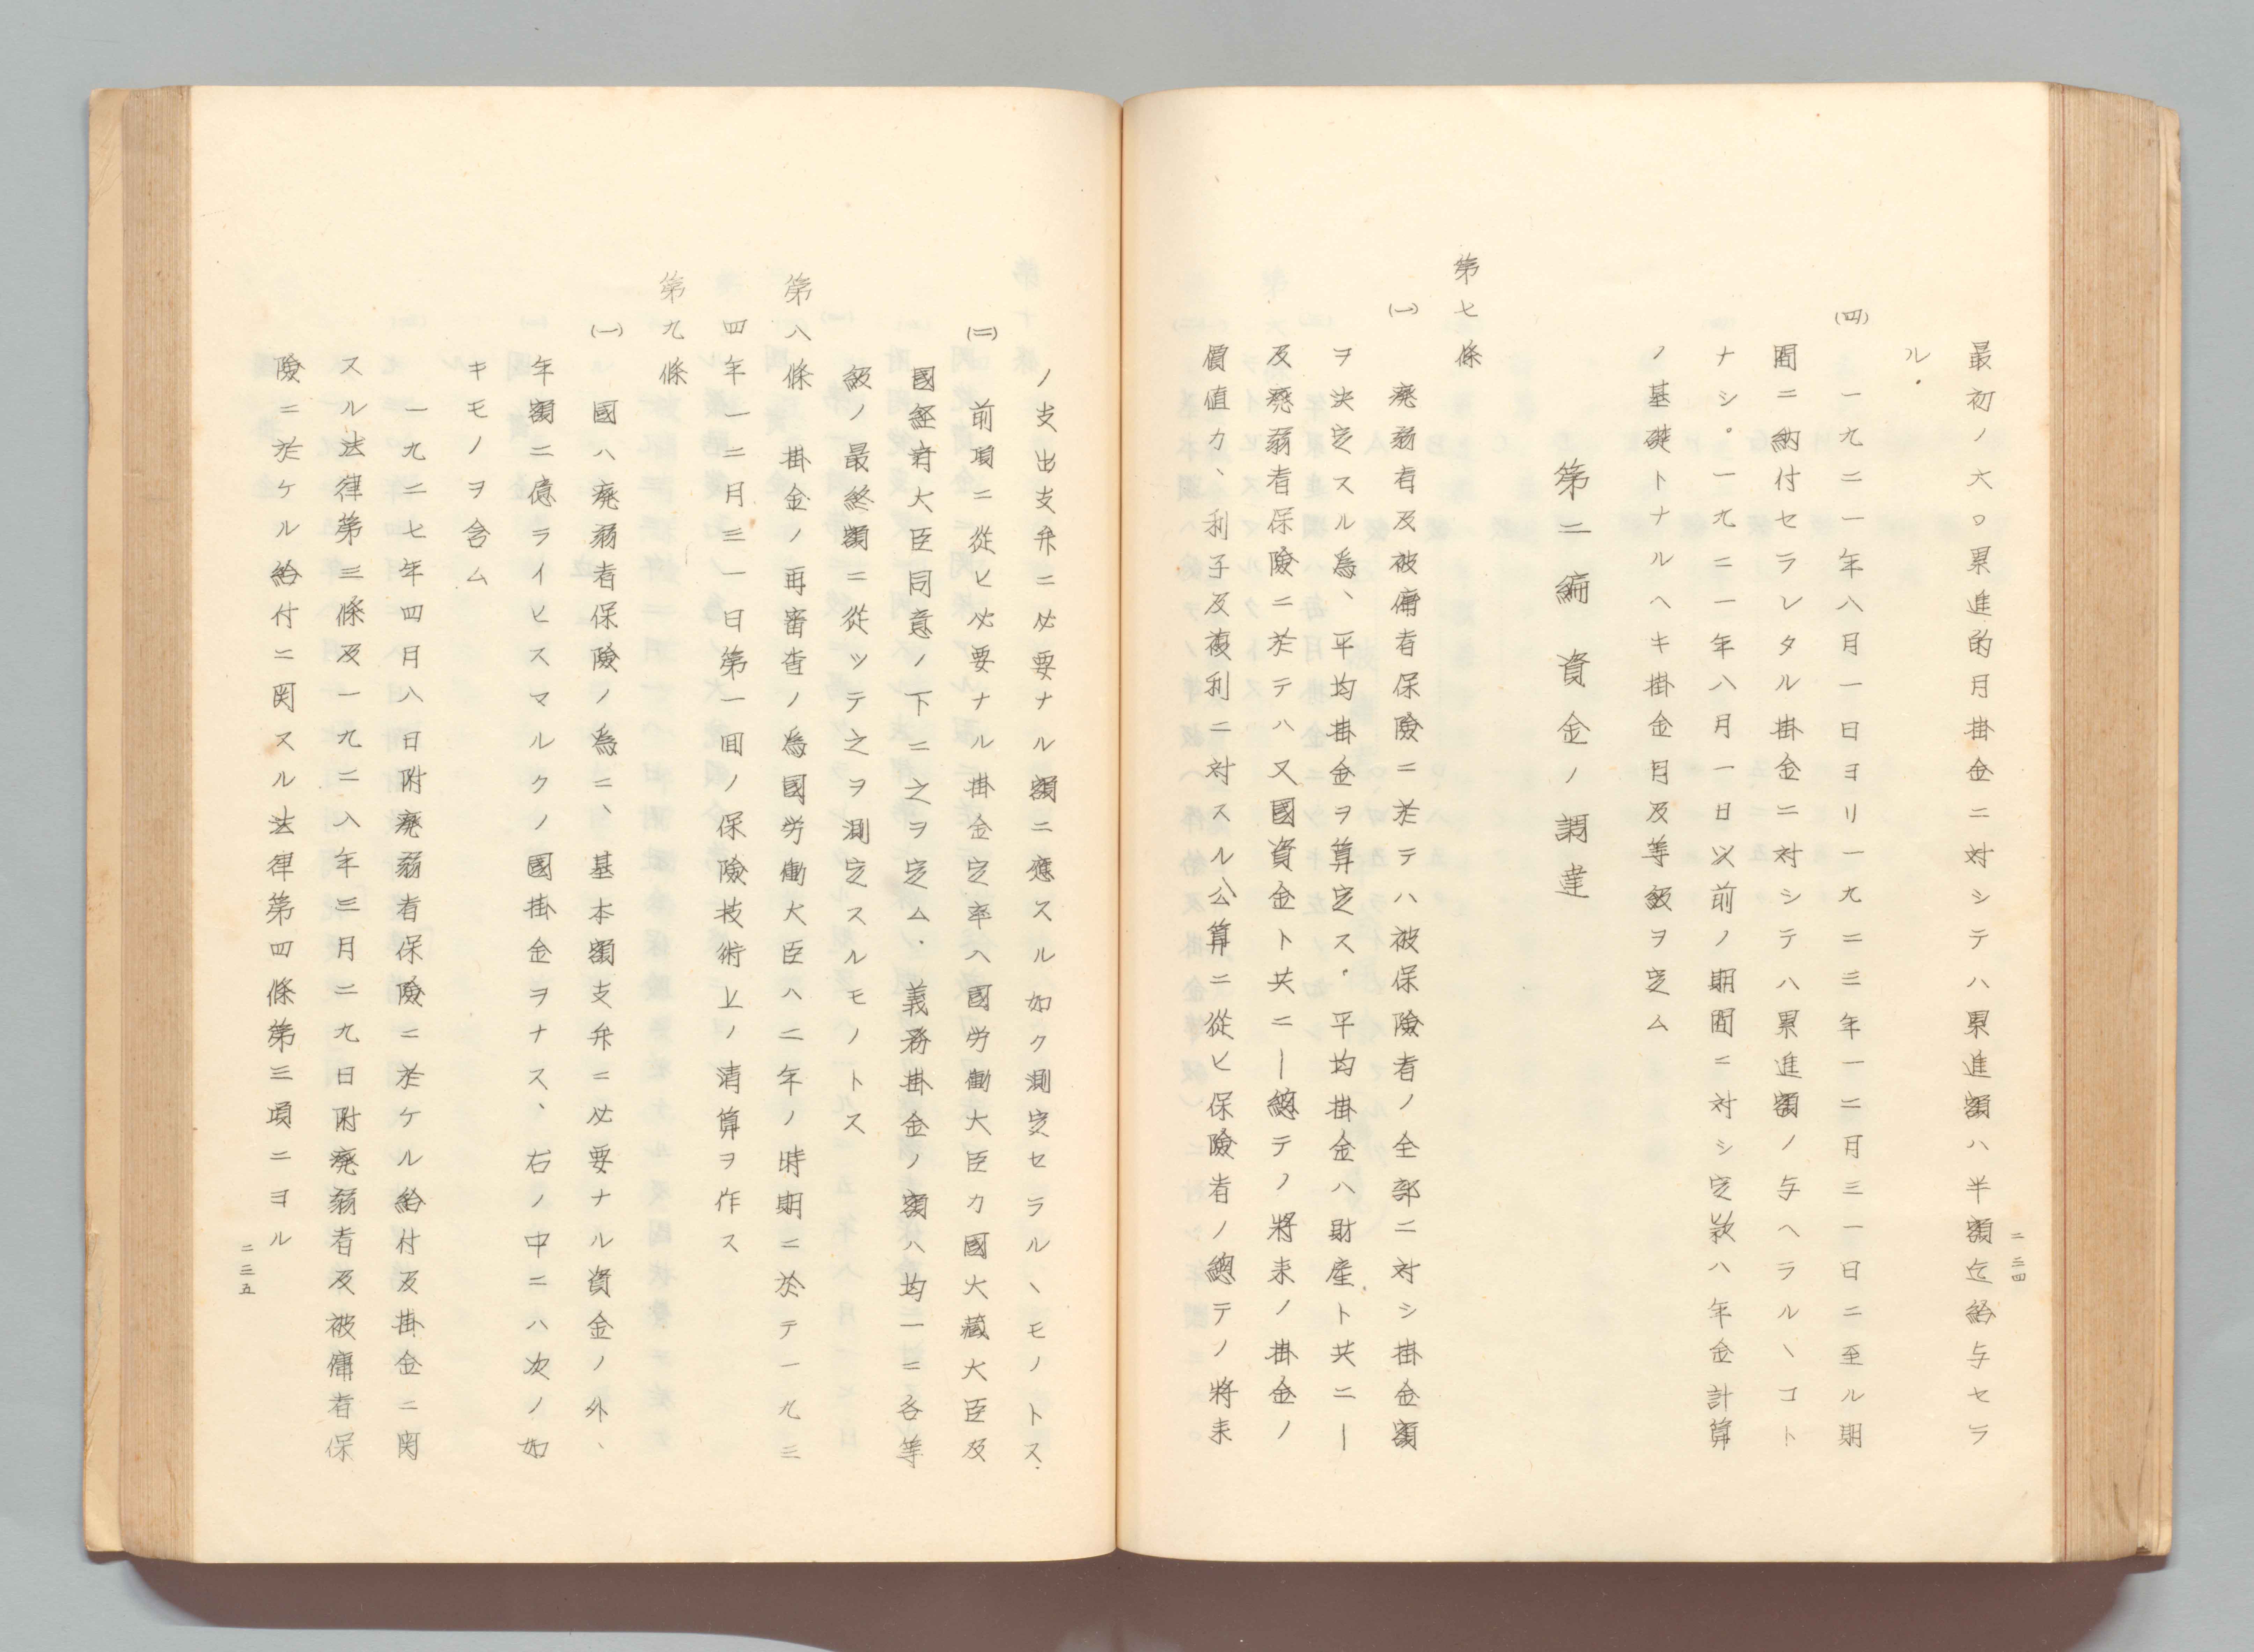 最初ノ六〇累進的月掛金ニ対シテハ累進額ハ半額迄給与セラ
ル.
(四) 一九二一年八月一日ヨリ一九二三年一二月三一日ニ至ル期
間ニ納付セラレタル掛金ニ対シテハ累進額ノ与ヘラルヽコト
ナシ。一九二一年八月一日以前ノ期間ニ対シ定款ハ年金計算
ノ基礎トナルヘキ掛金月及等級ヲ定ム
第二編 資金ノ調達
第七條
(一) 廃弱者及被傭者保険ニ於テハ被保険者ノ全部ニ対シ掛金額
ヲ決定スル為、平均掛金ヲ算定ス.平均掛金ハ財産ト共ニ―
及廃弱者保険ニ於テハ又國資金ト共ニ―總テノ將来ノ掛金ノ
價値カ、利子及複利ニ対スル公算ニ從ヒ保険者ノ總テノ將来
二三四
ノ支出支弁ニ必要ナル額ニ應スル如ク測定セラルヽモノトス.
(二) 前項ニ從ヒ必要ナル掛金定率ハ國労働大臣カ國大藏大臣及
國經済大臣同意ノ下ニ之ヲ定ム.義務掛金ノ額ハ均一ニ各等
級ノ最終額ニ從ツテ之ヲ測定スルモノトス
第八條 掛金ノ再審査ノ為國労働大臣ハ二年ノ時期ニ於テ一九三
四年一二月三一日第一回ノ保険技術上ノ清算ヲ作ス
第九條
(一) 國ハ廃弱者保険ノ為ニ、基本額支弁ニ必要ナル資金ノ外、
年額二億ライヒスマルクノ國掛金ヲナス、右ノ中ニハ次ノ如
キモノヲ含ム
一九二七年四月八日附廃弱者保険ニ於ケル給付及掛金ニ関
スル法律第三條及一九二八年三月二九日附廃弱者及被傭者保
険ニ於ケル給付ニ関スル法律第四條第三項ニヨル
二三五